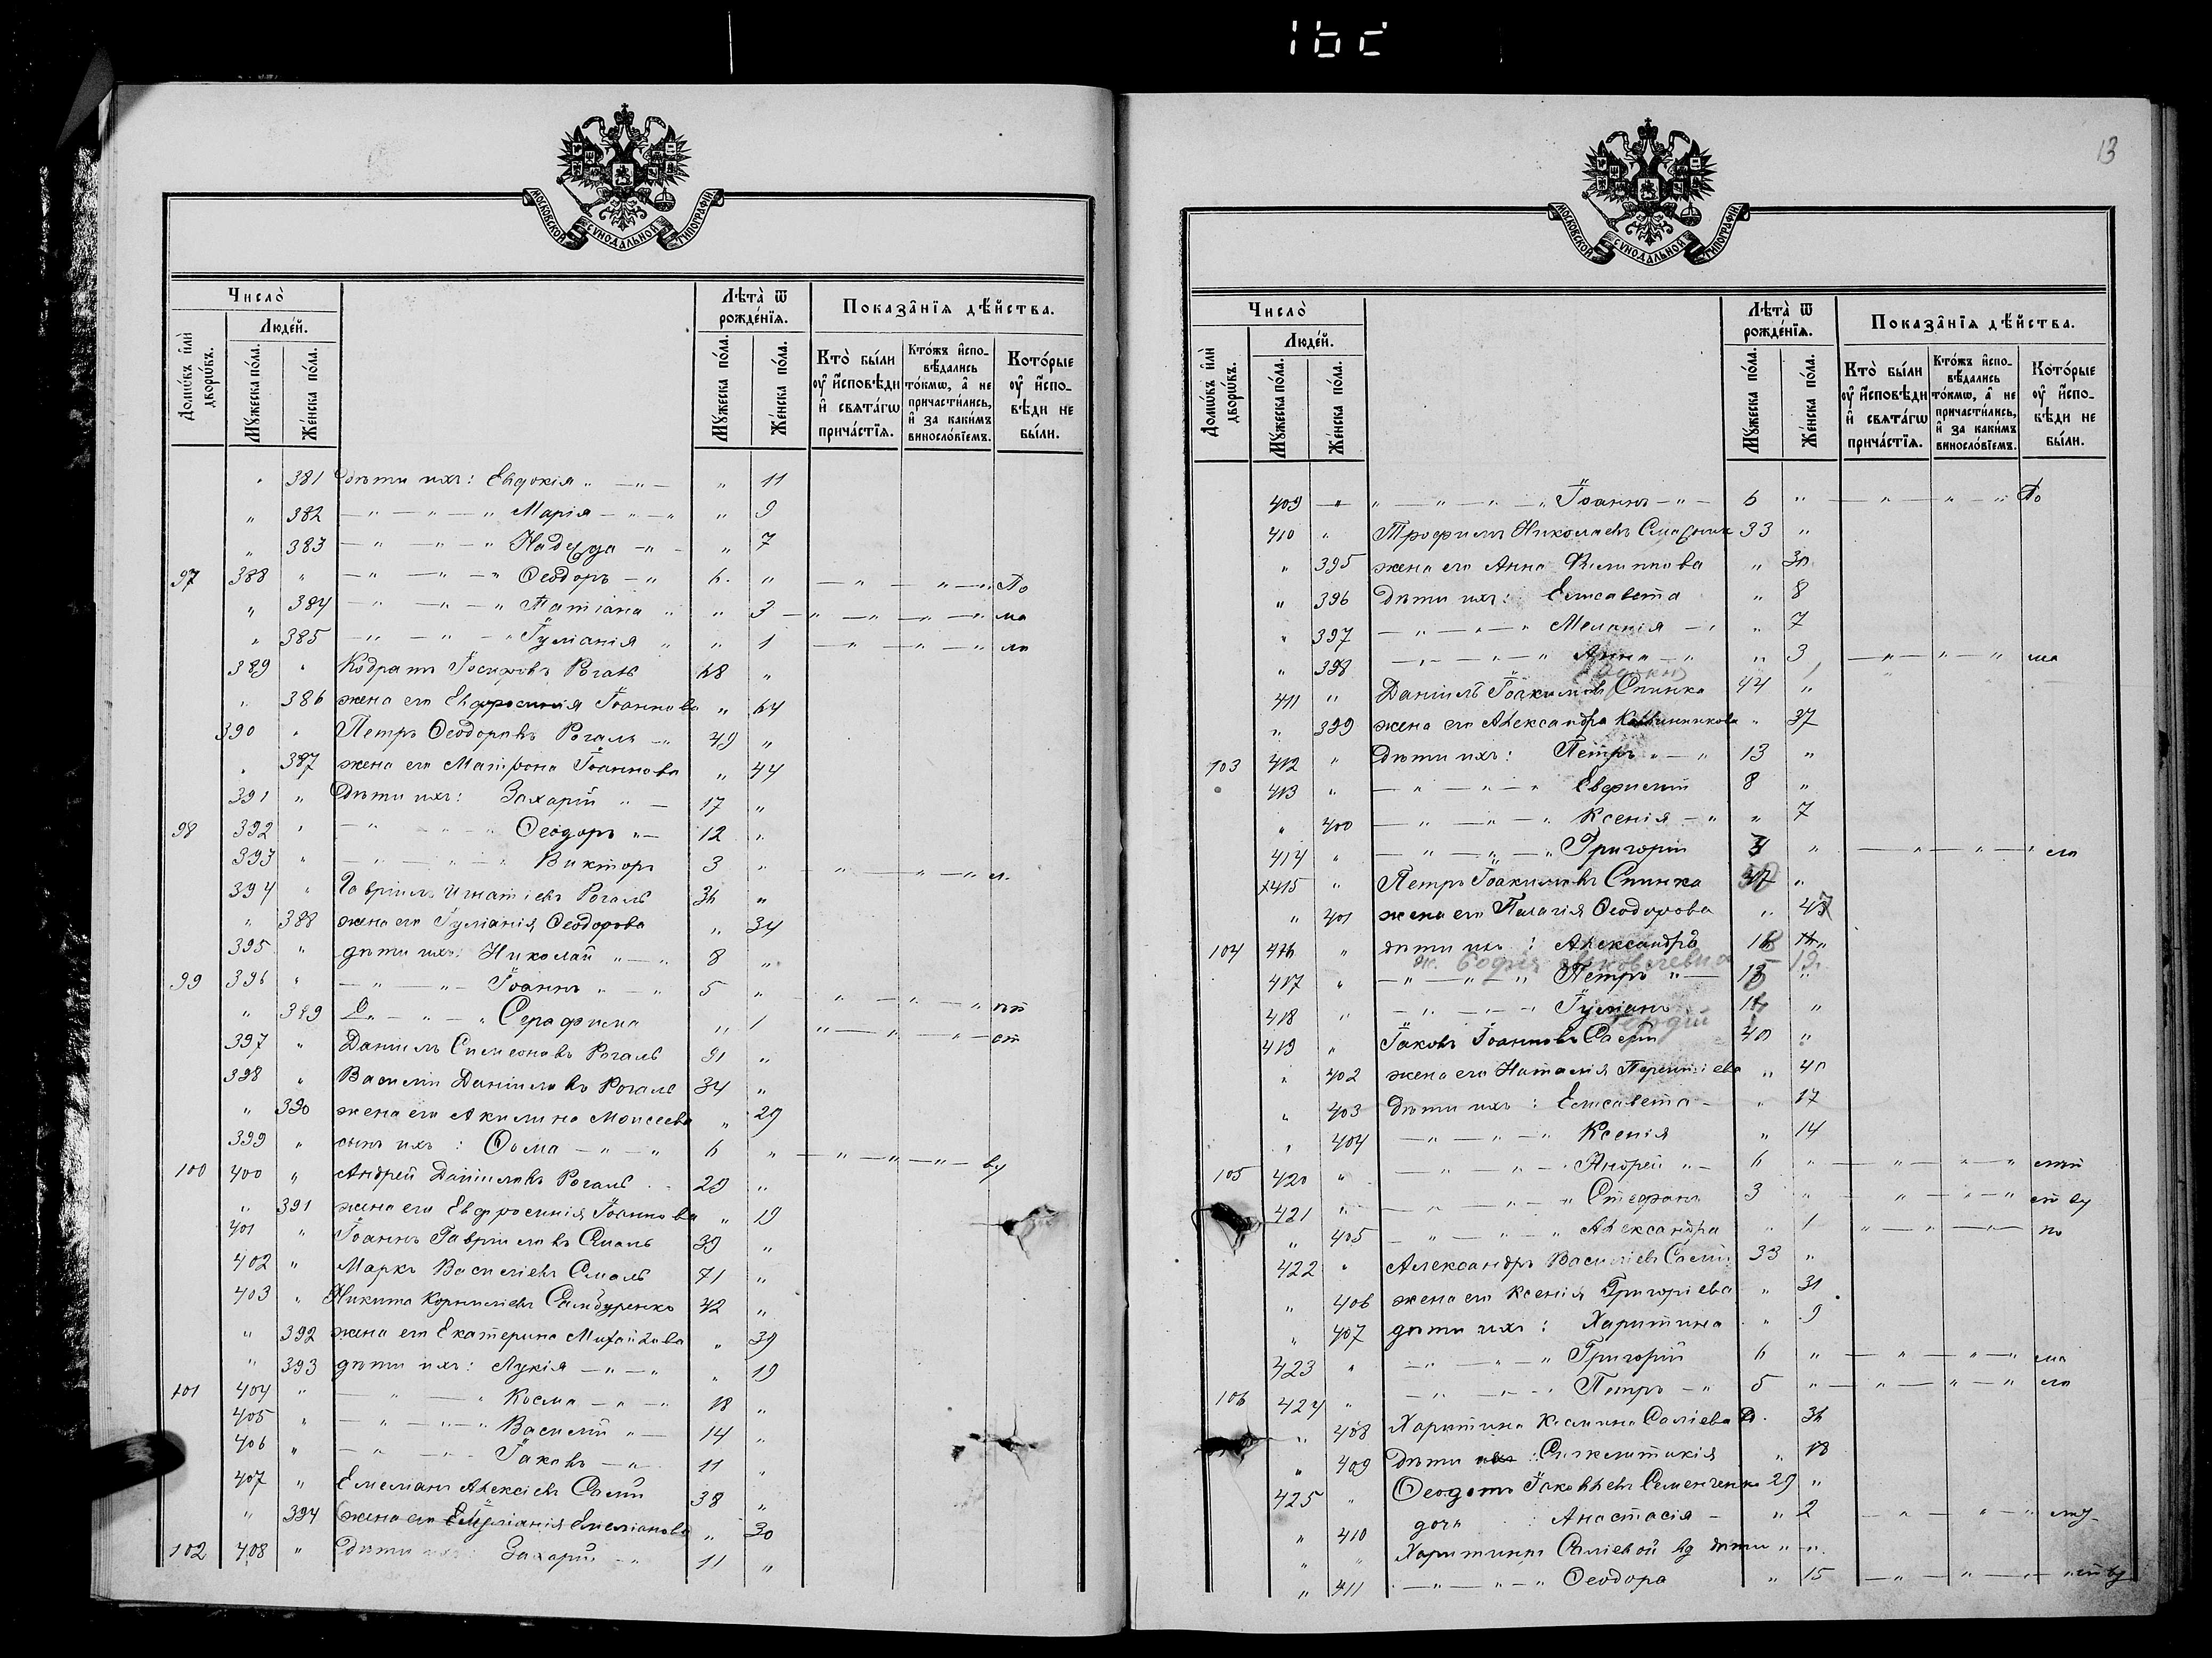 13
МОСКОВСКОЙ СѴНОДАЛЬНОЙ ТИПОГРАФІИ
Число̀
Домѡ́въ и҆лѝ дворѡ́въ.
Люде́й.
Мꙋ́жеска по́ла.
Же́нска по́ла.
Лѣта̀ ѿ рожде́нїѧ.
Мꙋ́жеска по́ла.
Же́нска по́ла.
Показа̂нїѧ дѣ́йства.
Кто̀ бы́ли ᲂу҆ и҆́сповѣди и҆ свѧта́гѡ прича́стїѧ.
Кто́жъ и҆сповѣ́дались то́кмѡ, а҆ не причасти́лись, и҆ за каки́мъ винослóвїемъ.
Кото́рые ᲂу҆ и҆́сповѣди не бы́ли.
" 381 Дѣти ихъ: Евдокія " — " — " 11
" 382 — " — " — " Марія — " — " " 9
" 383 — " — " — " Надежда — " — " 7
97 388 " — " — " — " Ѳеодоръ — " 6 " — " — " — " По
" 384 — " — " — " Татіана " " 3 — " — " — " — " ма
" 385 — " — " — " Іуліанія " " 1 — " — " — " ло
389 " Кодратъ Іосифовъ Рогаль 68 "
" 386 жена его Евфросинія Іоаннова " 64
390 " Петръ Ѳеодоровъ Рогаль — " 49 "
" 387 жена его Матрона Іоаннова " 44
391 " Дѣти ихъ: Захарій " — 17 "
98 392 " — " — " — " Ѳеодоръ " — 12 "
393 " — " — " — " Викторъ 3 " — " — " — "
394 " Гавріилъ Игнатіевъ Рогаль 36 "
" 388 жена его Іуліанія Ѳеодорова " 34
395 " дѣти ихъ: Николай " — " 8 "
99 396 " — " — " — Іоаннъ " — " 5 " " — " — "
" 389 — " — " Серафима " 1 " — " — " — ст
397 " Даніилъ Симеоновъ Рогаль 91 "
398 " Василій Даніиловъ Рогаль 34 "
" 390 жена его Акилина Моисеева " 29
399 " сынъ ихъ: Ѳома — " — " 6 " — " — " — " — ву
100 400 " Андрей Даніиловъ Рогаль 29 "
" 391 жена его Евфросинія Іоаннова " 19
401 " Іоаннъ Гавріиловъ Смаль 39 "
402 " Маркъ Василіевъ Смаль 71 "
403 " Никита Корниліевъ Самбуренко 42 "
" 392 жена его Екатерина Михайлова " 39
" 393 дѣти ихъ: Лукія — " — " " 19
101 404 " — " — " Косма — " — " 18 "
405 " — " — " — " Василій " — 14 "
406 " — " — " — Іаковъ — " 11 "
407 " Емеліанъ Алексіевъ Салій 38 "
" 394 жена его Іуліанія Емеліанова " 30
102 408 " Дѣти ихъ: Захарій — " 11 "
Число̀
Домѡ́въ и҆лѝ дворѡ́въ.
Люде́й.
Мꙋ́жеска по́ла.
Же́нска по́ла.
Лѣта̀ ѿ рожде́нїѧ.
Мꙋ́жеска по́ла.
Же́нска по́ла.
Показа̂нїѧ дѣ́йства.
Кто̀ бы́ли ᲂу҆ и҆́сповѣди и҆ свѧта́гѡ прича́стїѧ.
Кто́жъ и҆сповѣ́дались то́кмѡ, а҆ не причасти́лись, и҆ за каки́мъ винослóвїемъ.
Кото́рые ᲂу҆ и҆́сповѣди не бы́ли.
409 — " — " — " — " Іоаннъ — " — 6 " — " — " — " По
410 " Трофимъ Николаевъ 33 "
" 395 жена его Анна Филиппова " 30
" 396 Дѣти ихъ: Елисавета " 8
" 397 — " — " — " Меланія — " " 7
" 398 — " — " — " Анна — " " 3 — " — " — " ма
411 " Даніилъ Іоакимовъ Спинка 44 "
" 399 жена его Александра " 37
103 412 " Дѣти ихъ: Петръ " — " 13 "
413 " — " — " — " Евфимій 8 "
" 400 — " — " — " Ксенія — " " 7
414 " — " — " — " Григорій 3 " — " — " — "
415 " Петръ Іоакимовъ Спинка 47 "
" 401 жена его Пелагія Ѳеодорова " 47
104 416 " дѣти ихъ: Александръ 18
ж. Софія Яковлевна 19
417 " — " — " — " Петръ " — 15 "
418 " — " — " — " Іуліанъ 14 "
419 " Іаковъ Іоанновъ Салій 40 "
" 402 жена его Наталія Терентіева " 40
" 403 Дѣти ихъ: Елисавета — " 17
" 404 — " — " — " Ксенія " 14
105 420 " — " — " — " Андрей " — 6 " — " — " — "
421 " — " — " — " Стефанъ 3 " — " — " — " ст ву
" 405 — " — " — " Александра " 1 " — " — " — по
422 " Александръ Василіевъ Салій 33 "
" 406 жена его Ксенія Григоріева " 31
" 407 дѣти ихъ: Харитина " 9
423 " — " — " — " Григорій 6 " — " — " — " ма
106 424 " — " — " — " Петръ — " 5 " — " — " — "
" 408 Харитина Космина Саліева 36
" 409 Дѣти ихъ: Синклитикія " 18
425 " Ѳеодотъ Іаковлевъ Семенченко 29 "
" 410 дочь: Анастасія — " 2 — " — " — "
" " Харитины Саліевой вд дѣти " — "
" 411 — " — " — " Ѳеодора " 15 — " — " — " ст ву